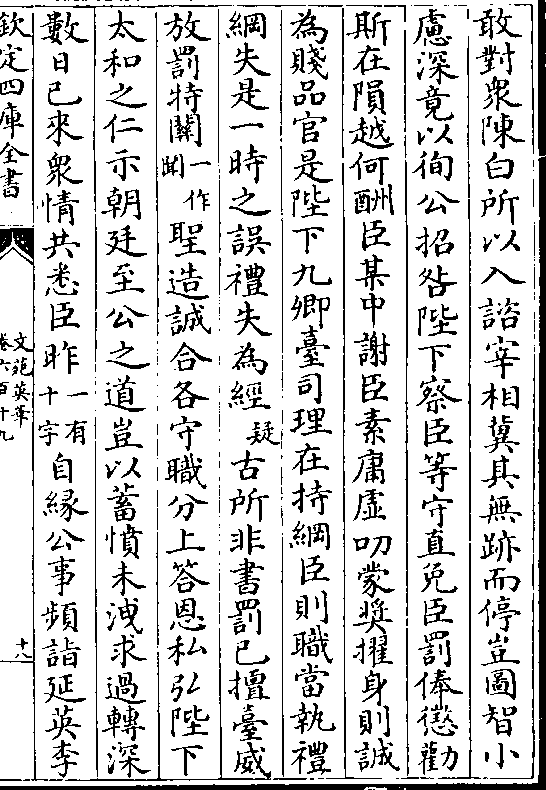 敢對衆陳白所以入諮宰相冀其無跡而停豈圖智小
慮深竟以徇公招咎陛下察臣等守直免臣罰俸懲勸
斯在隕越何酬臣某中謝臣素庸虛叨蒙奬擢身則誠
為賤品官是陛下九卿臺司理在持綱臣則職當執禮
綱失是一時之誤禮失為經疑古所非書罰已擅臺威
放罰特關一作聞聖造誠合各守職分上答恩私弘陛下
太和之仁示朝廷至公之道豈以蓄憤未洩求過轉深
數日已來衆情共悉臣昨一有十字自緣公事頻詣延英李
欽定四庫全書
文苑英華
卷六百十九
十八